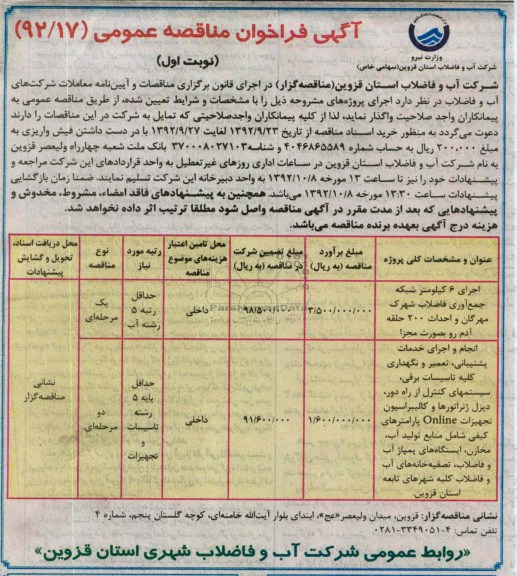 آگهی فراخوان مناقصه عمومی (۹۲/۱۷)
(نوبت اول)
وزارت نیرو
شرکت آب و فاضلاب استان قزوین(سهامی خاص)
شرکت آب و فاضلاب استان قزوین(مناقصه‌گزار) در اجرای قانون برگزاری مناقصات و آیین‌نامه معاملات شرکت‌های
آب و فاضلاب در نظر دارد اجرای پروژه‌های مشروحه ذیل را با مشخصات و شرایط تعیین شده، از طریق مناقصه عمومی به
پیمانکاران واجد صلاحیت واگذار نماید، لذا از کلیه پیمانکاران واجدصلاحیتی که تمایل به شرکت در این مناقصات را دارند
دعوت می‌گردد به منظور خرید اسناد مناقصه از تاریخ ۱۳۹۲/۹/۲۳ لغایت ۱۳۹۲/۹/۲۷ با در دست داشتن فیش واریزی به
مبلغ ۲۰۰.۰۰۰ ریال به حساب شماره ۴۰۴۶۸۶۵۵۸۹ و شناسه ۳۷۰۰۰۸۰۲۷۱۰۳ بانک ملت شعبه چهارراه ولیعصر قزوین
به نام شرکت آب و فاضلاب استان قزوین در ساعات اداری روزهای غیرتعطیل به واحد قراردادهای این شرکت مراجعه و
پیشنهادات خود را نیز تا ساعت ۱۳ مورخه ۱۳۹۲/۱۰/۸ به واحد دبیرخانه این شرکت تسلیم نمایند. ضمنا زمان بازگشایی
پیشنهادات ساعت ۱۳:۳۰ مورخه ۱۳۹۲/۱۰/۸ می‌باشد. همچنین به پیشنهادهای فاقد امضاء، مشروط، مخدوش و
پیشنهادهایی که بعد از مدت مقرر در آگهی مناقصه واصل شود مطلقا ترتیب اثر داده نخواهد شد.
هزینه درج آگهی بعهده برنده مناقصه می‌باشد.
عنوان و مشخصات کلی پروژه
مبلغ برآورد
مناقصه (به ریال)
مبلغ تضمین شرکت
در مناقصه (به ریال)
محل تامین اعتبار
هزینه‌های موضوع
مناقصه
رتبه مورد
نیاز
نوع
مناقصه
محل دریافت اسناد،
تحویل و گشایش
پیشنهادات
اجرای ۶ کیلومتر شبکه
جمع‌آوری فاضلاب شهرک
مهرگان و احداث ۲۰۰ حلقه
آدم رو بصورت مجزا
۳/۵۰۰/۰۰۰/۰۰۰
۹۸/۵۰۰/۰۰۰
داخلی
حداقل
رتبه ۵
رشته آب
یک
مرحله‌ای
نشانی
مناقصه‌گزار
انجام و اجرای خدمات
پشتیبانی، تعمیر و نگهداری
کلیه تاسیسات برقی،
سیستمهای کنترل از راه دور،
دیزل ژنراتورها و کالیبراسیون
تجهیزات Online پارامترهای
کیفی شامل منابع تولید آب،
مخازن، ایستگاه‌های پمپاژ آب
و فاضلاب، تصفیه‌خانه‌های آب
و فاضلاب کلیه شهرهای تابعه
استان قزوین.
۱/۶۰۰/۰۰۰/۰۰۰
۹۱/۶۰۰/۰۰۰
داخلی
حداقل
پایه ۵
رشته
تاسیسات
و
تجهیزات
دو
مرحله‌ای
نشانی مناقصه‌گزار: قزوین، میدان ولیعصر«عج»، ابتدای بلوار آیت‌الله خامنه‌ای، کوچه گلستان پنجم، شماره ۴
تلفن تماس: ۴-۳۳۴۹۰۵۱-۰۲۸۱
«روابط عمومی شرکت آب و فاضلاب شهری استان قزوین»